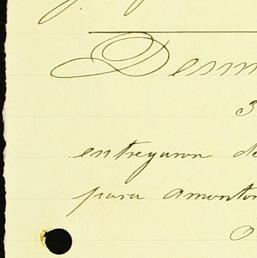 Desm
3
entregaron de
para amonton
O